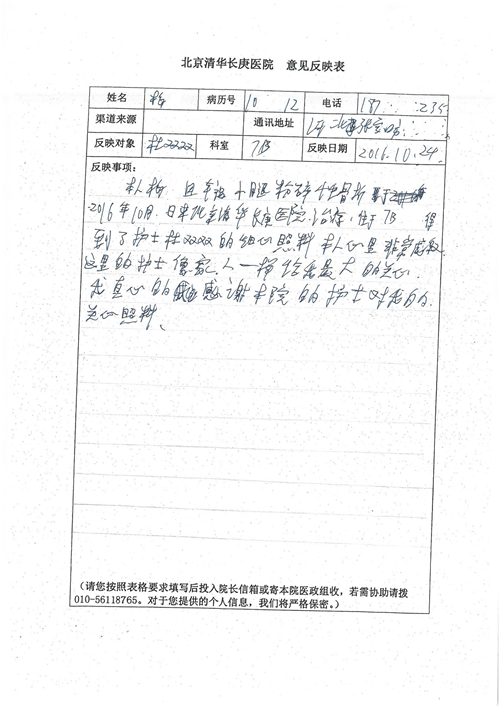 北京清华长庚医院 意见反映表
姓名 梅 病历号 10 12 电话 187 235
渠道来源 通讯地址
反映对象 杜XXXX 科室 7B 反映日期 2016.10.24.
反映事项:
本人梅 因车祸小腿粉碎性骨折 于
2016年10月 日来北京清华长庚医院治疗.住于7B 得
到了护士杜XXXX的细心照料 本人心里非常感激
这里的护士像家人一样给我最大的关心.
我真心的 感谢本院的护士对我的
关心照料、
(请您按照表格要求填写后投入院长信箱或寄本院医政组收,若需协助请拨
010-56118765。对于您提供的个人信息,我们将严格保密。)